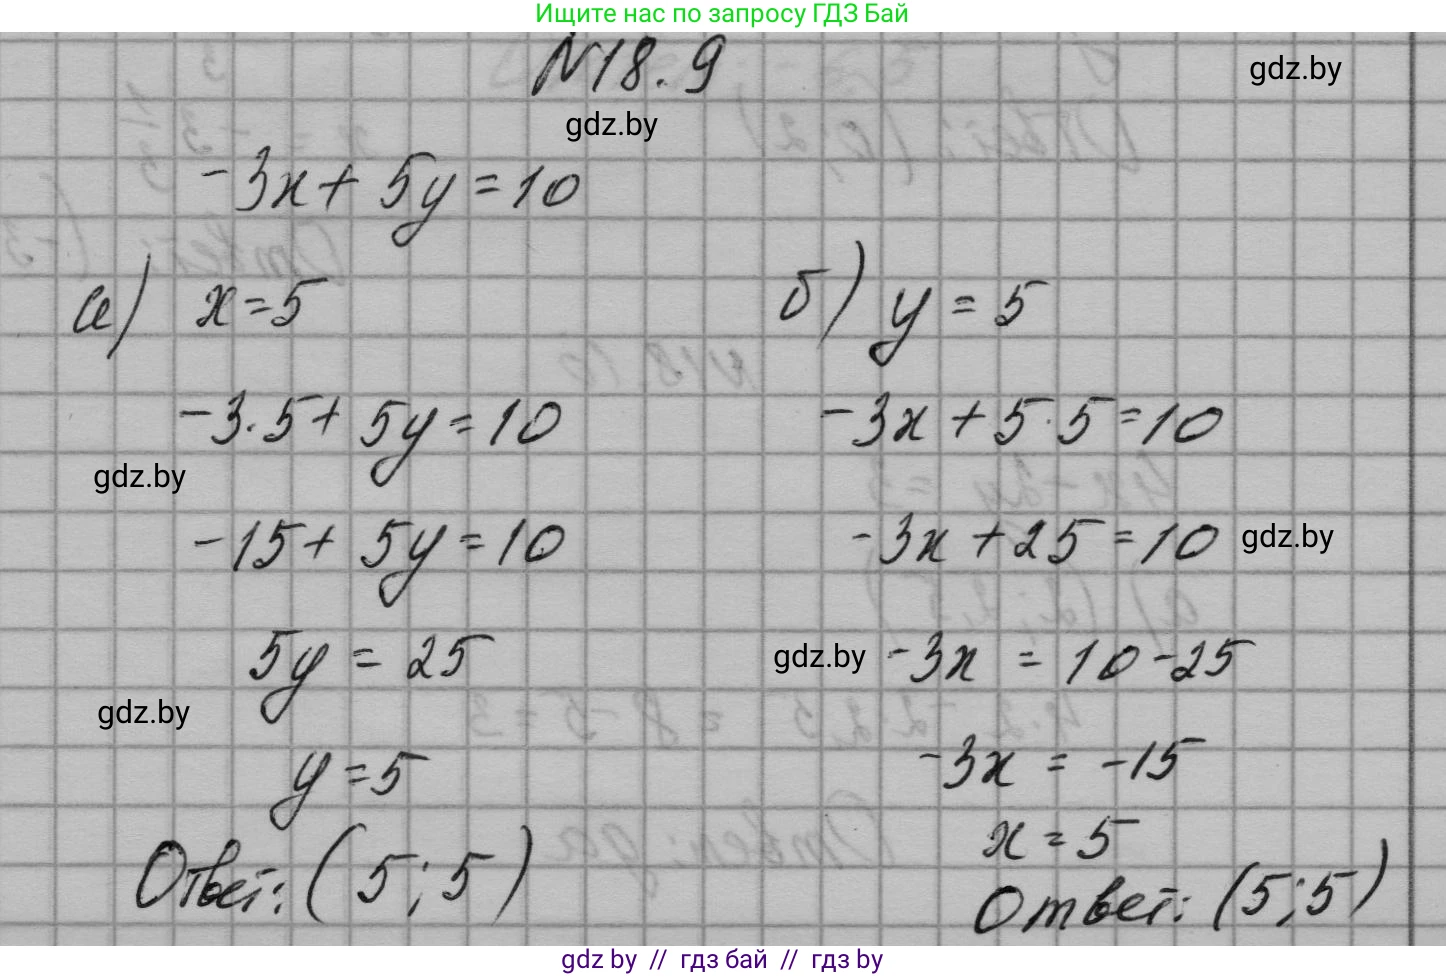 Ищите нас по запросу ГДЗ Бай
N18.9
gdz.by
gdz.by
-3x + 5y = 10
а) x = 5
-3·5 + 5y = 10
gdz.by
-15 + 5y = 10
5y = 25
gdz.by
y = 5
Ответ: (5; 5)
б) y = 5
-3x + 5·5 = 10
-3x + 25 = 10
gdz.by
gdz.by
-3x = 10-25
-3x = -15
x = 5
Ответ: (5; 5)
gdz by // гдз бай // гдз by